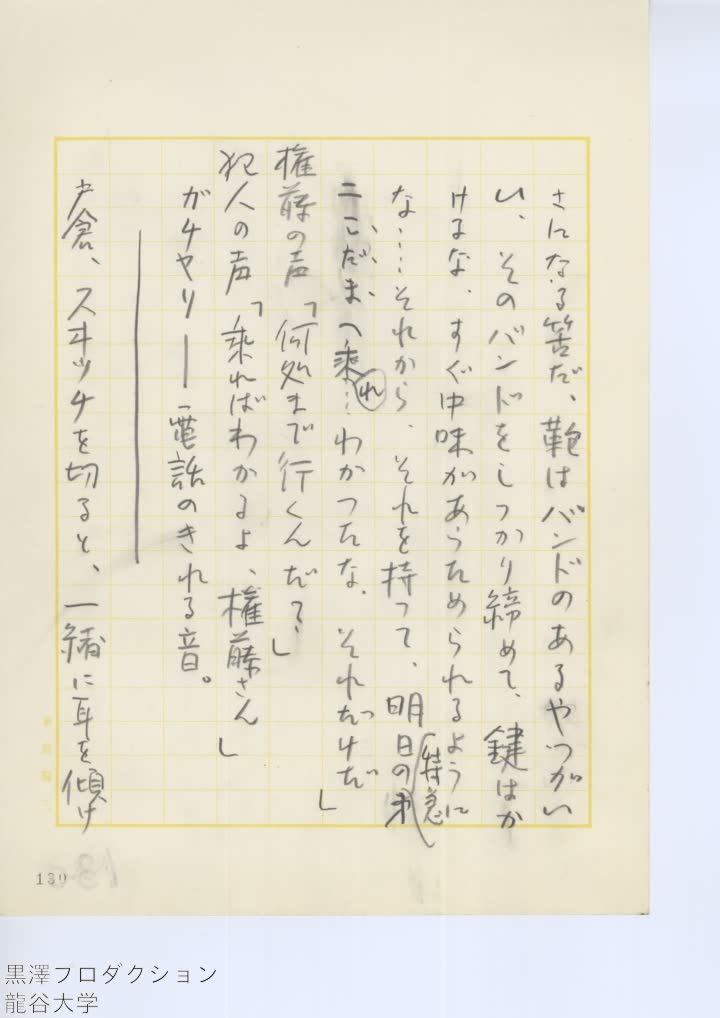 さになる筈だ、鞄はバンドのあるやつがい
い、そのバンドをしつかり締めて、鍵はか
けるな、すぐ中味があらためられるように
な……それから、それを持つて、明日の特急㐧
二こだまへ乘れ…わかつたな、それだけだ」
権藤の声「何処まで行くんだ？」
犯人の声「乘ればわかるよ、権藤さん」
ガチヤリ――電話のきれる音。
戸倉、スヰッチを切ると、一緒に耳を傾け
130
黒澤プロダクション
龍谷大学